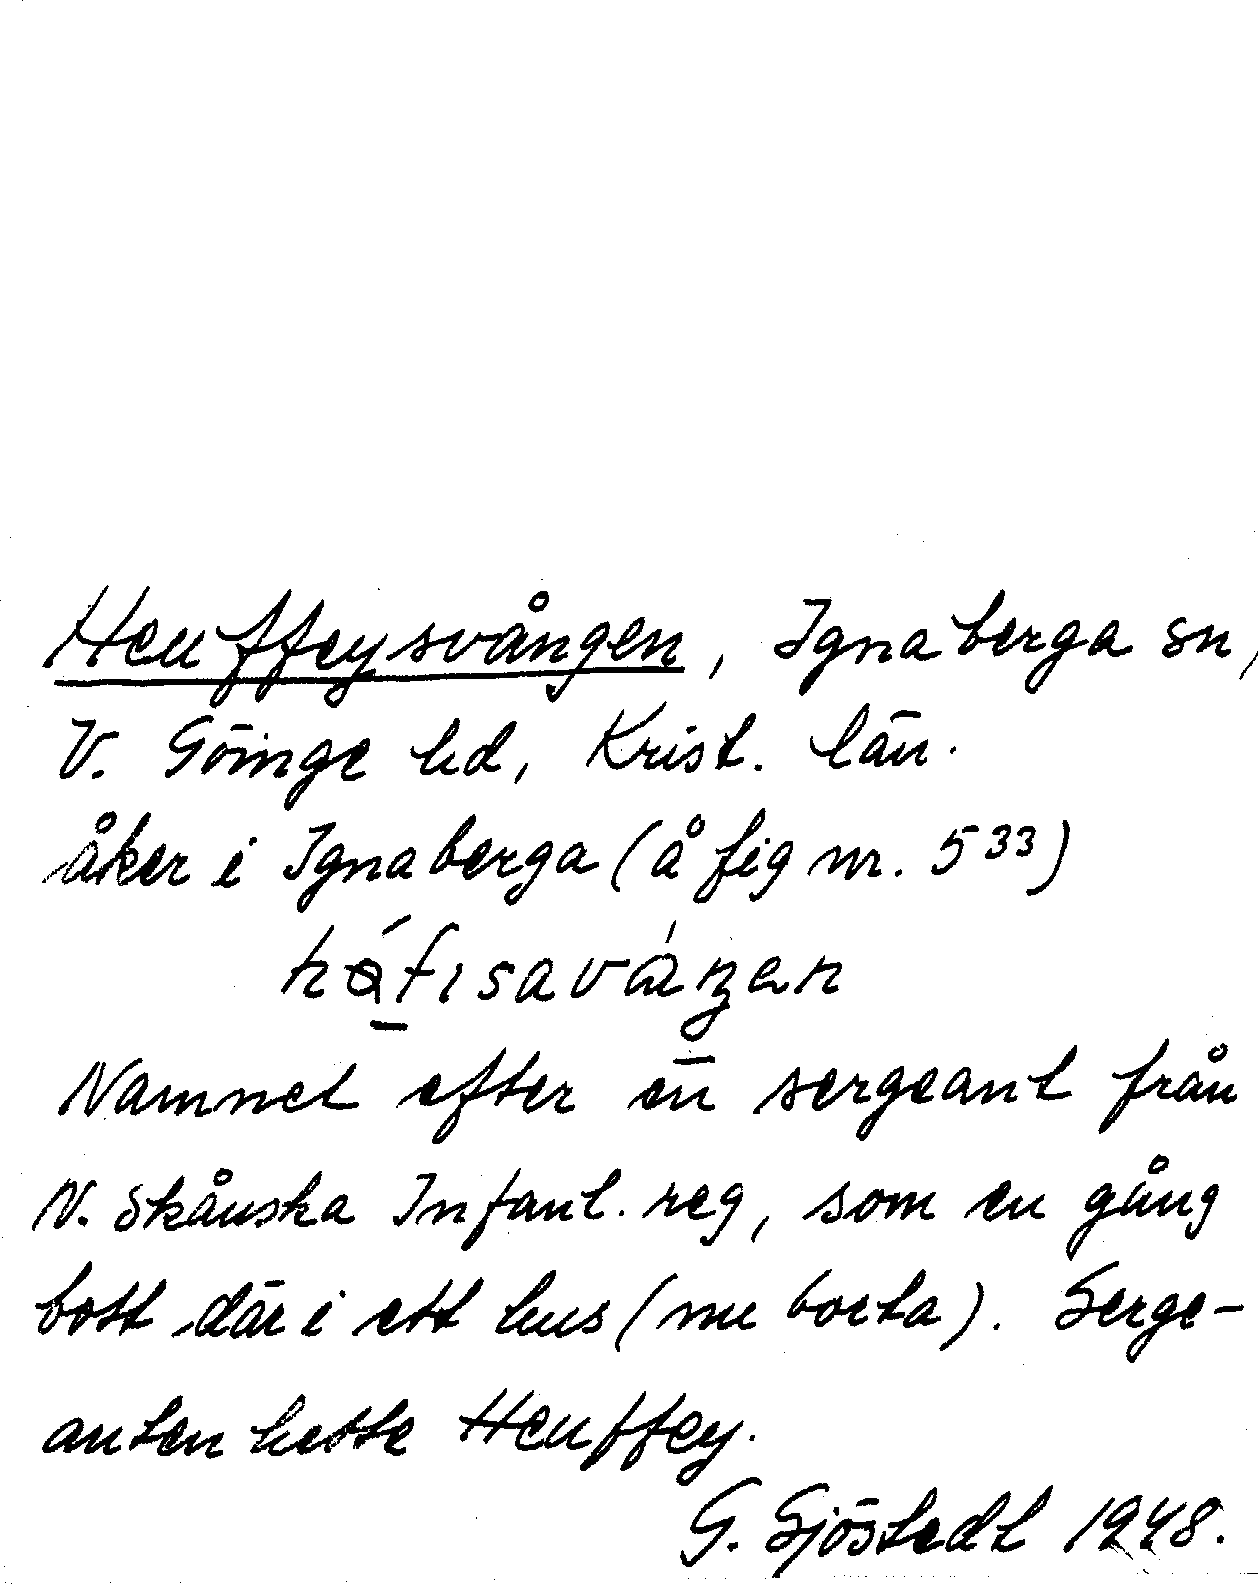 Heuffeysvången, Ignaberga sn,
V. Göinge hd, Krist. län.
åker i Ignaberga (å fig nr. 533)
Namnet efter en sergeant från
N. Skånska Infant. reg, som en gång
bott där i ett hus (nu borta). Serge-
anten hette Heuffey.
G. Sjöstedt 1948.